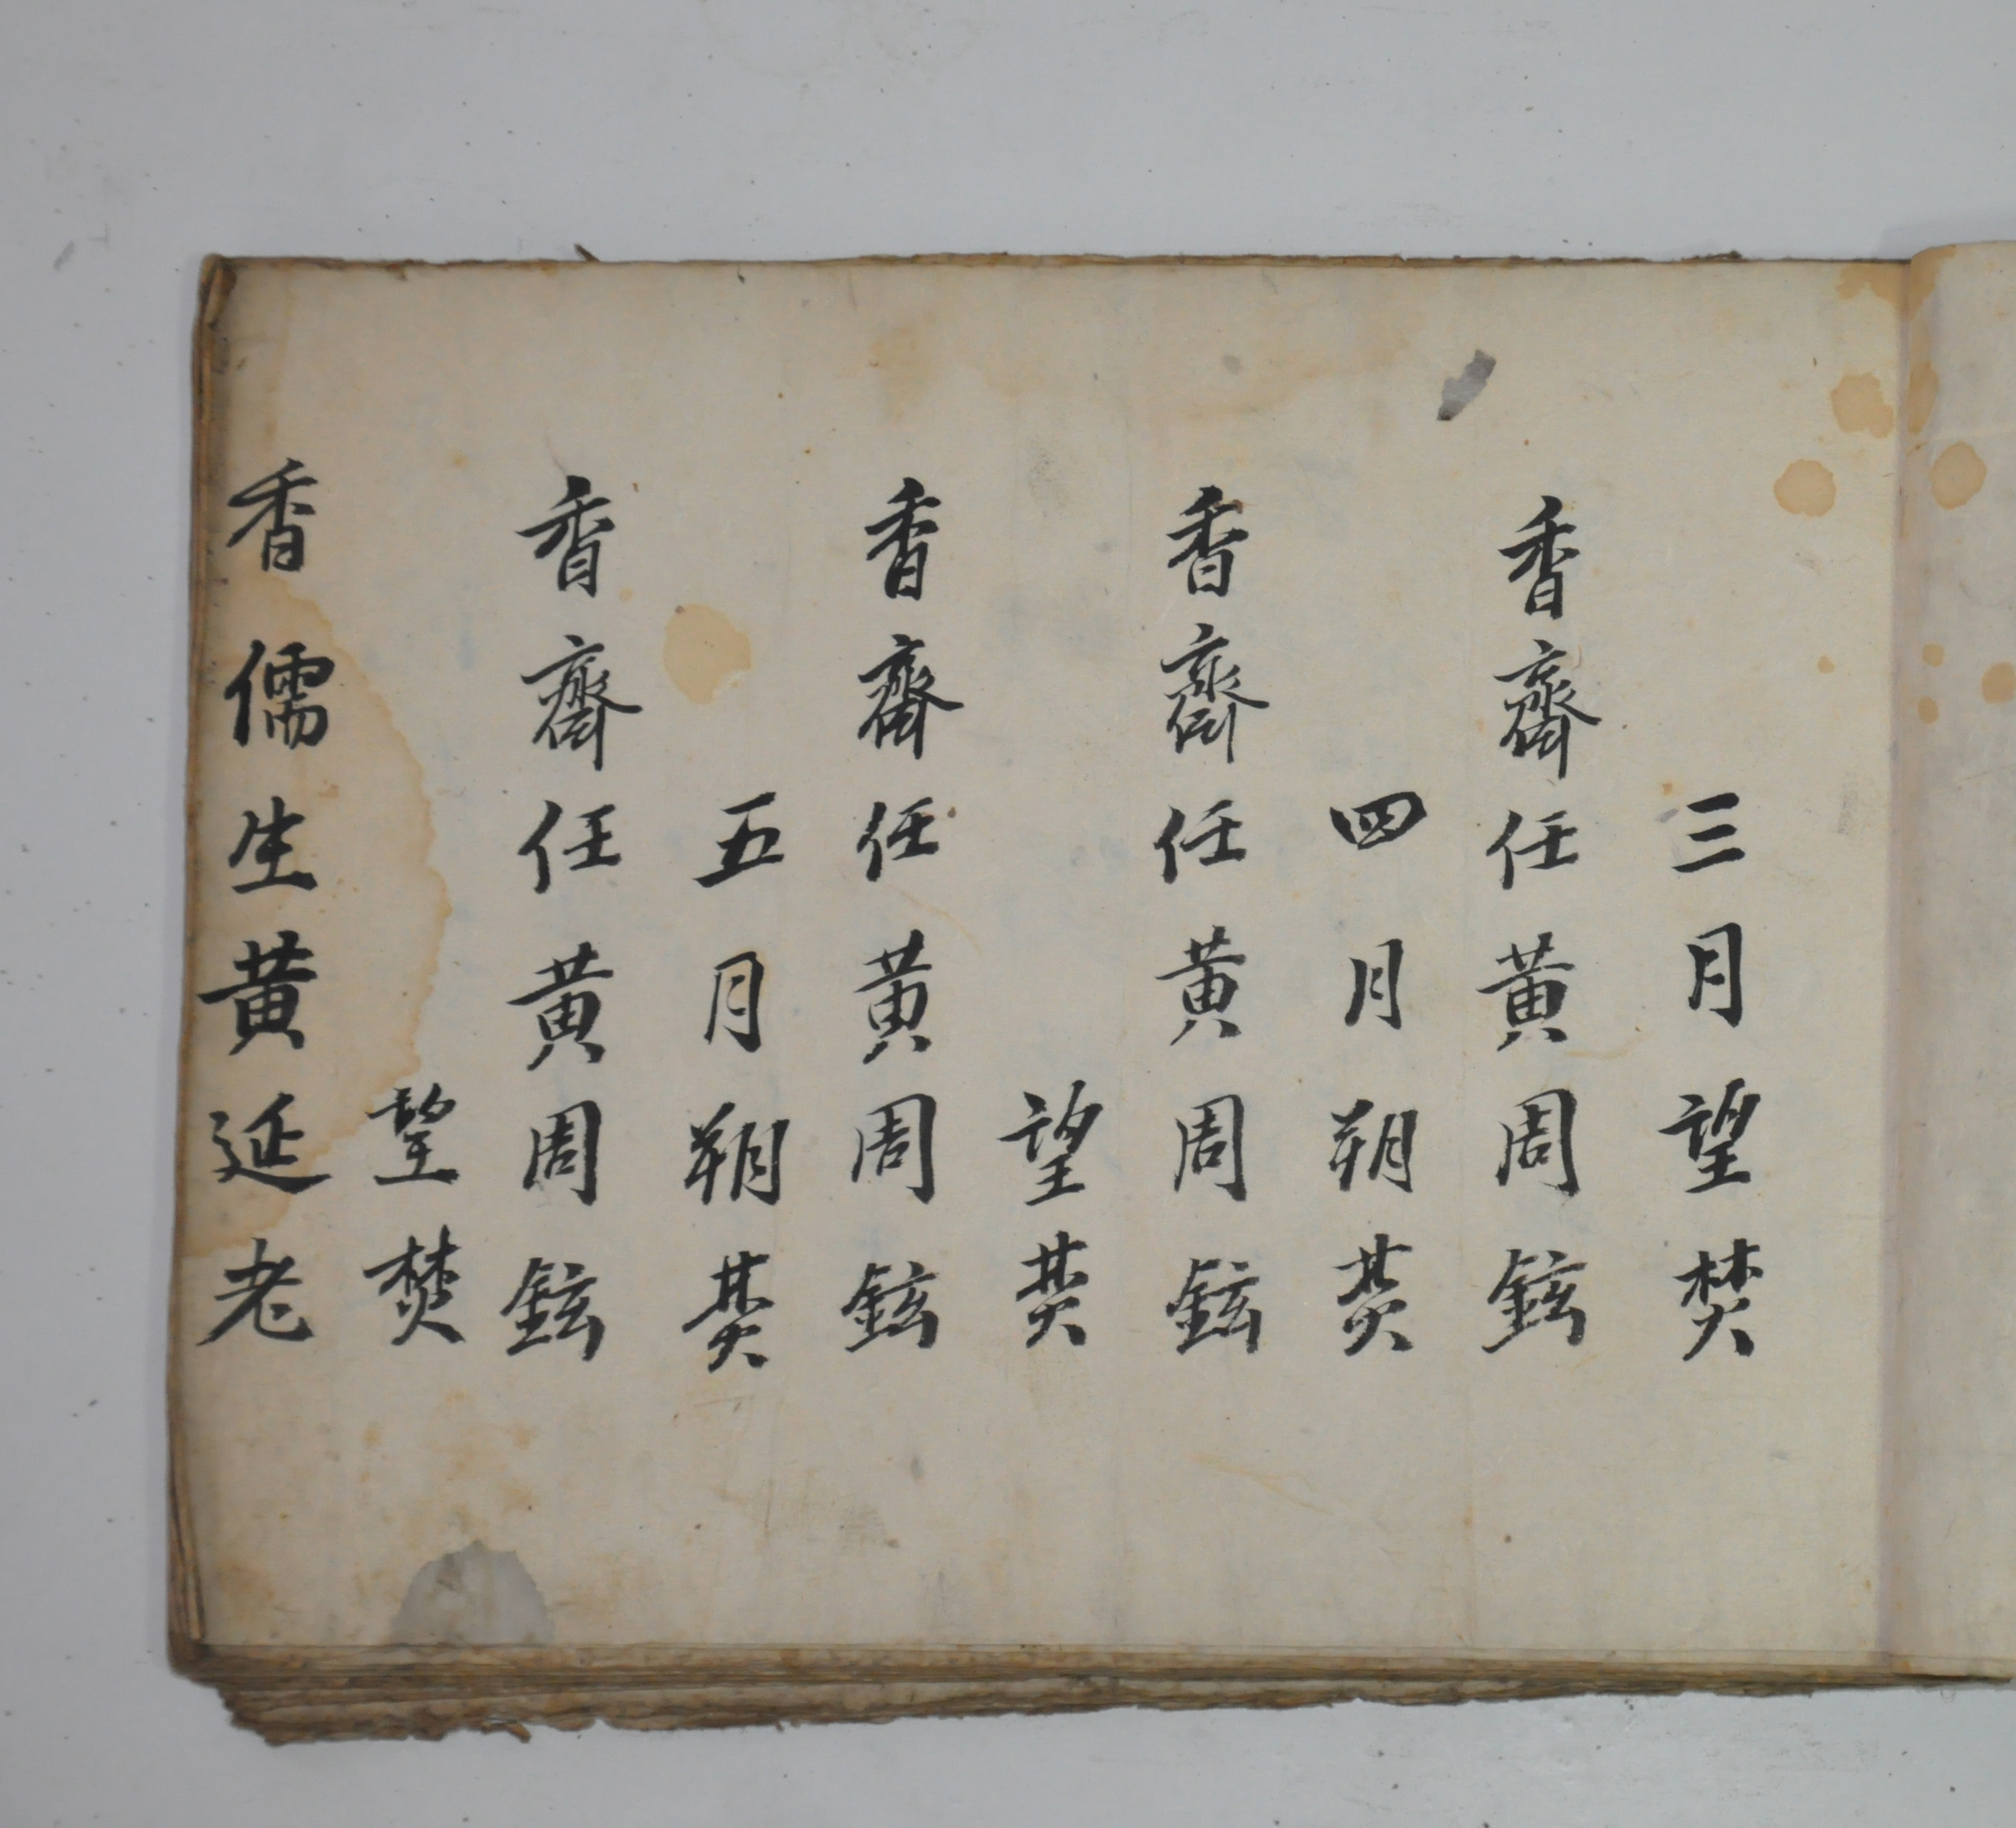 三月望焚
香齋任黃周鉉
四月朔焚
香齋任黃周鉉
望焚
香齋任黃周鉉
五月朔焚
香齋任黃周鉉
望焚
香儒生黃延老